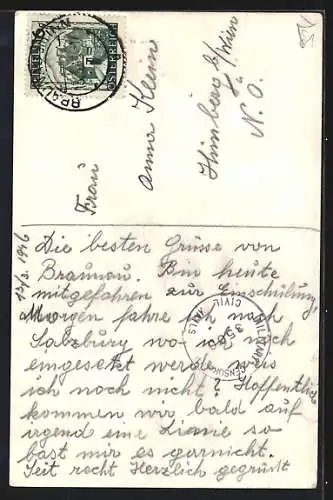 BRAUNAU
ÖSTERREICH
Frau
Anna Klein
Himberg b/Wien
N. Ö.
13/3. 1946
Die besten Grüsse von
Braunau. Bin heute
mitgefahren zur Einschulung,
Morgen fahre ich nach
Salzburg wo ich noch
eingesetzt werde weis
ich noch nicht? Hoffentlich
kommen wir bald auf
irgend eine Linie so
bast mir es garnicht.
Seit recht Herzlich gegrüßt
CIVIL MAILS